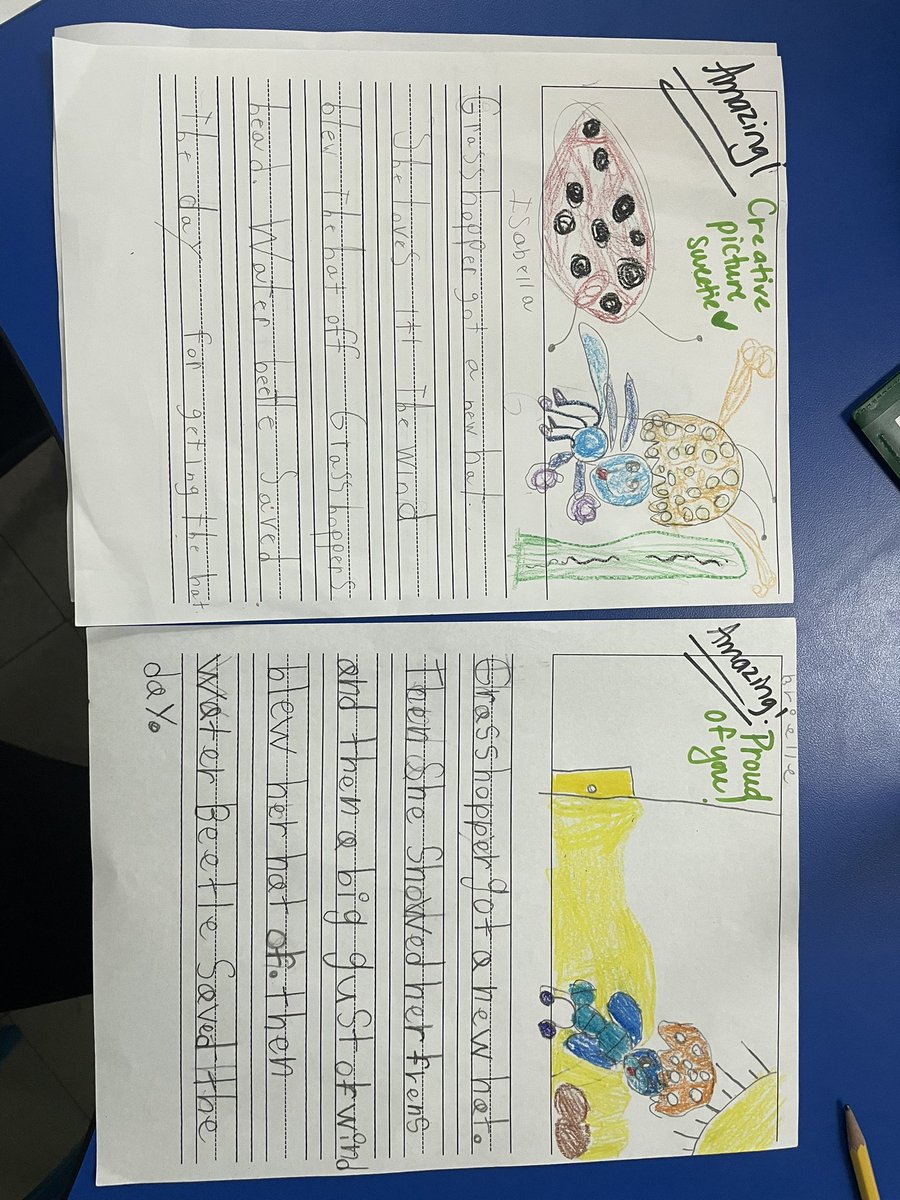 Amazing!
Creative
picture
sweetie
Isabella
Grasshopper got a new hat.
She loves It The wind
blew The hat off Grasshoppers
head. Water beetle Saived
The day for geting the hat.
Amazing!
Proud
of you!
arielle
Grasshopper got a new hat.
Then She Showed her frens
and then a big gust of wind
blew her hat of. then
Water Beetle Saved the
day.